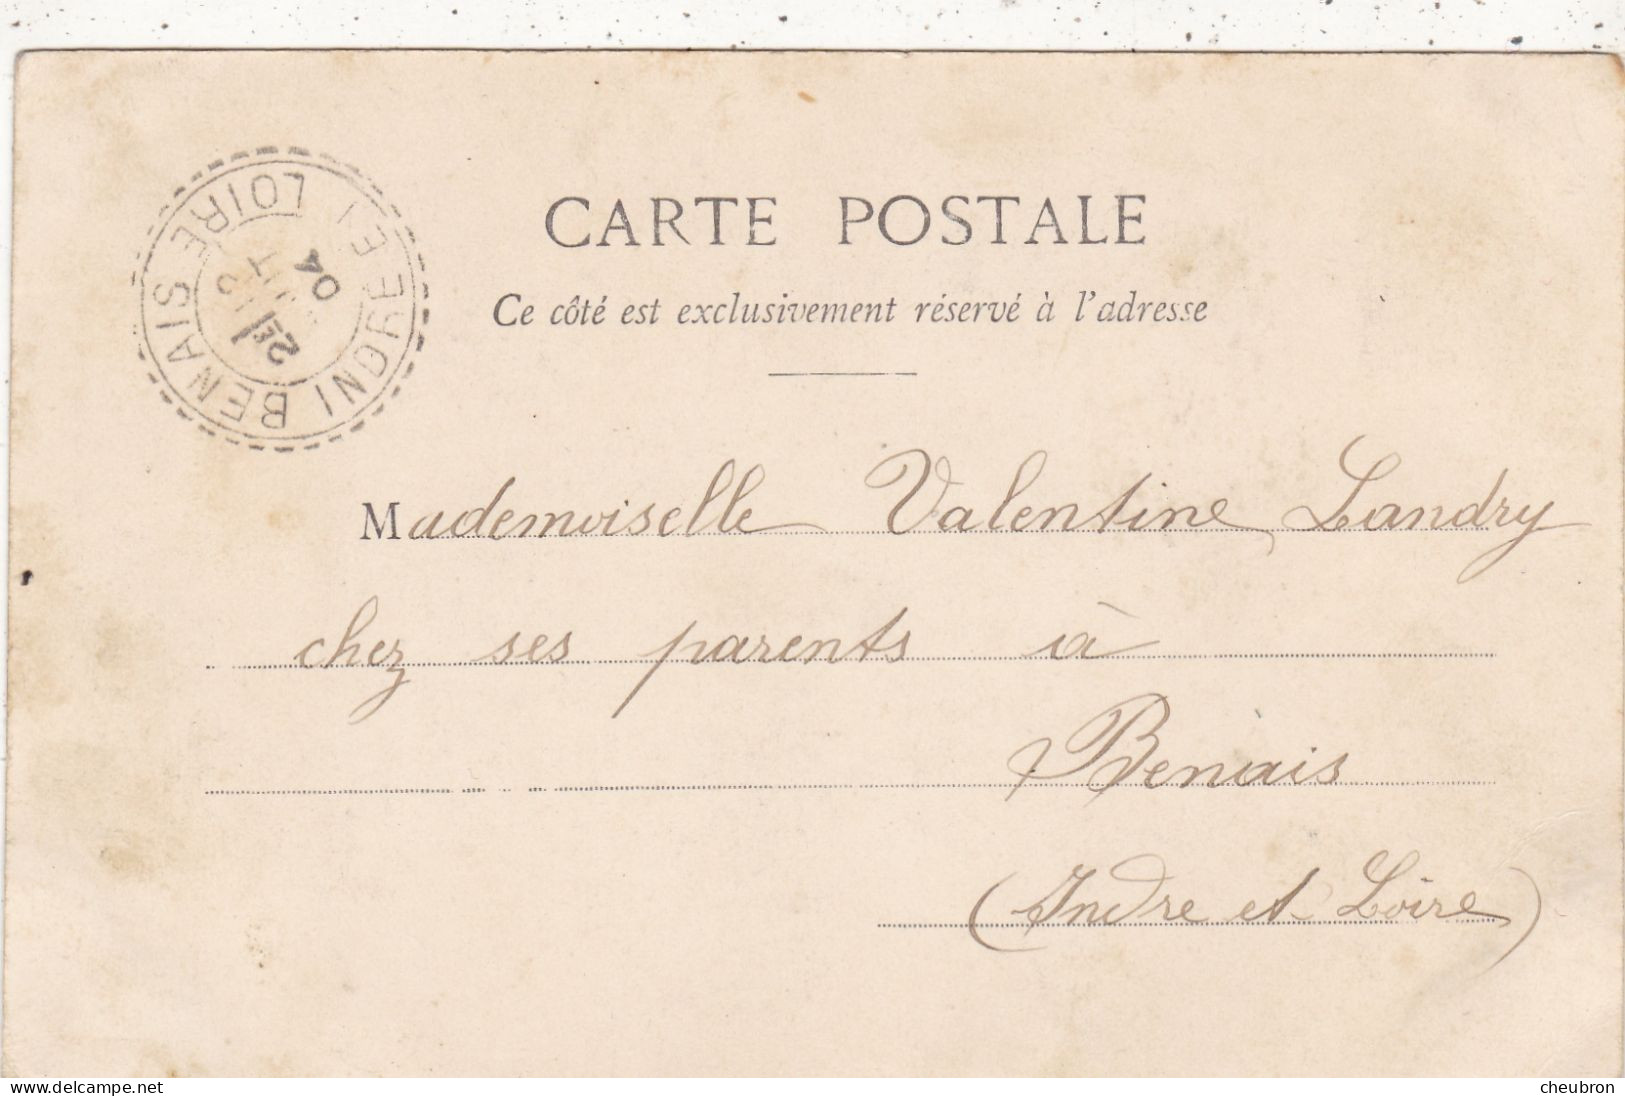 CARTE POSTALE
Ce côté est exclusivement réservé à l'adresse
BENAIS INDRE ET LOIRE
04
Mademoiselle Valentine Landry
chez ses parents à
Benais
(Indre et Loire)
www.delcampe.net
cheubron